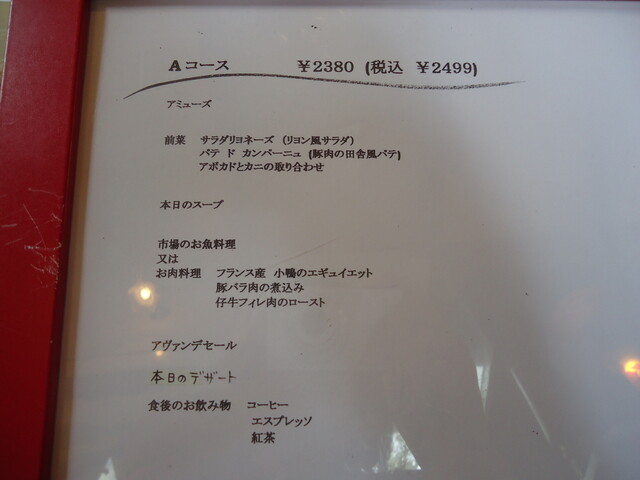 Aコース ￥2380 (税込 ￥2499)
アミューズ
前菜 サラダリヨネーズ (リヨン風サラダ)
パテ ド カンパーニュ (豚肉の田舎風パテ)
アボカドとカニの取り合わせ
本日のスープ
市場のお魚料理
又は
お肉料理 フランス産 小鴨のエギュイエット
豚バラ肉の煮込み
仔牛フィレ肉のロースト
アヴァンデセール
本日のデザート
食後のお飲み物 コーヒー
エスプレッソ
紅茶